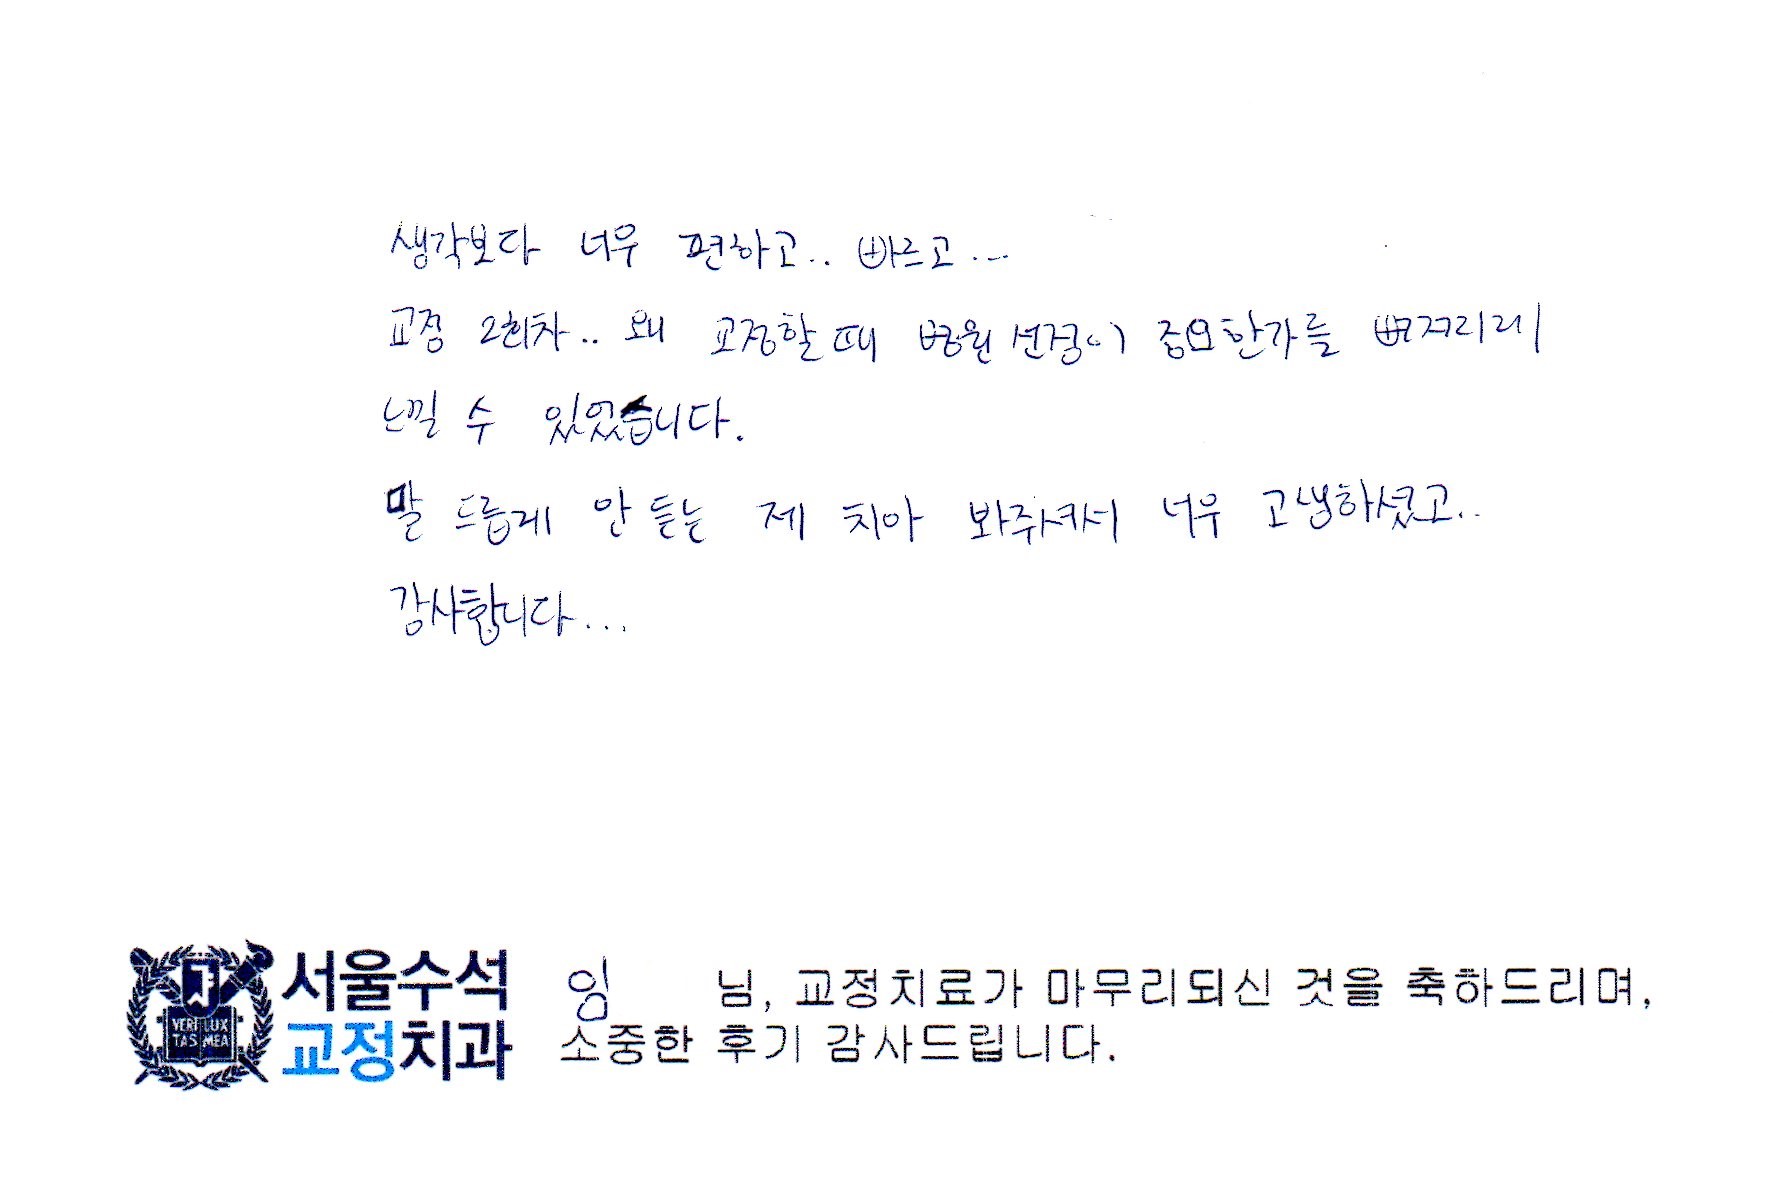 생각보다 너무 편하고.. 빠르고...
교정 2회차.. 왜 교정할 때 병원 선정이 중요한가를 뼈저리게
느낄 수 있었습니다.
말 드릅게 안 듣는 제 치아 봐주셔서 너무 고생하셨고..
감사합니다...
서울수석
교정치과
VERI LUX
TAS MEA
임 님, 교정치료가 마무리되신 것을 축하드리며,
소중한 후기 감사드립니다.